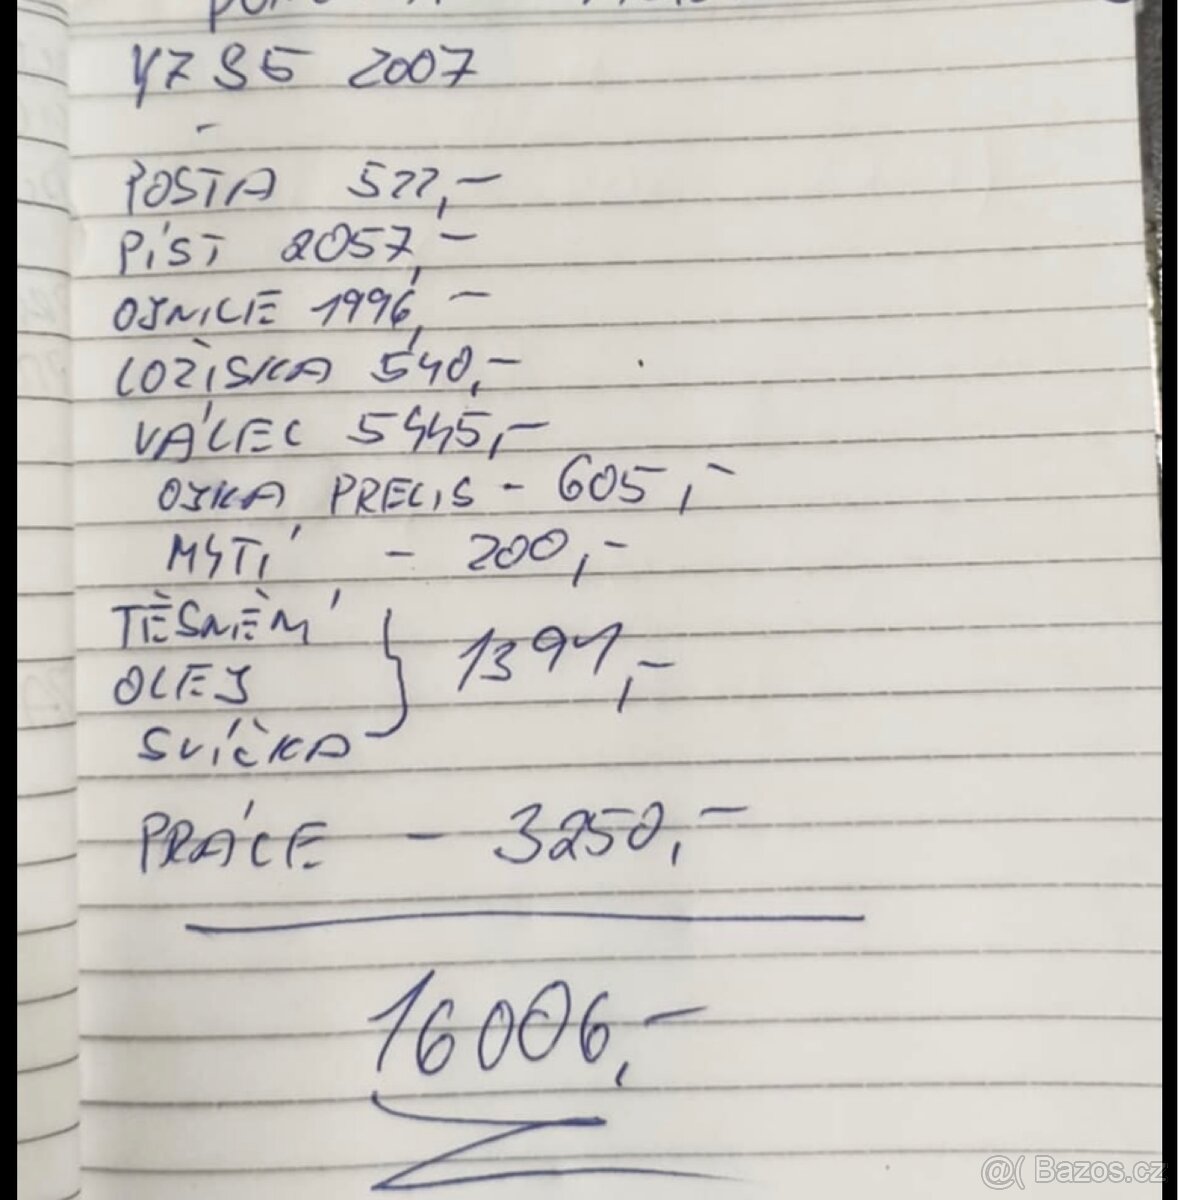 YZ 85 2007
POSTA 522,-
PÍST 2057,-
OJNICE 1996,-
LOŽISKA 540,-
VÁLEC 5445,-
OJKA PRECIS - 605,-
MYTÍ - 200,-
TĚSNĚNÍ
OLEJ
SVÍČKA
1391,-
PRÁCE - 3250,-
16006,-
@( Bazos.cz